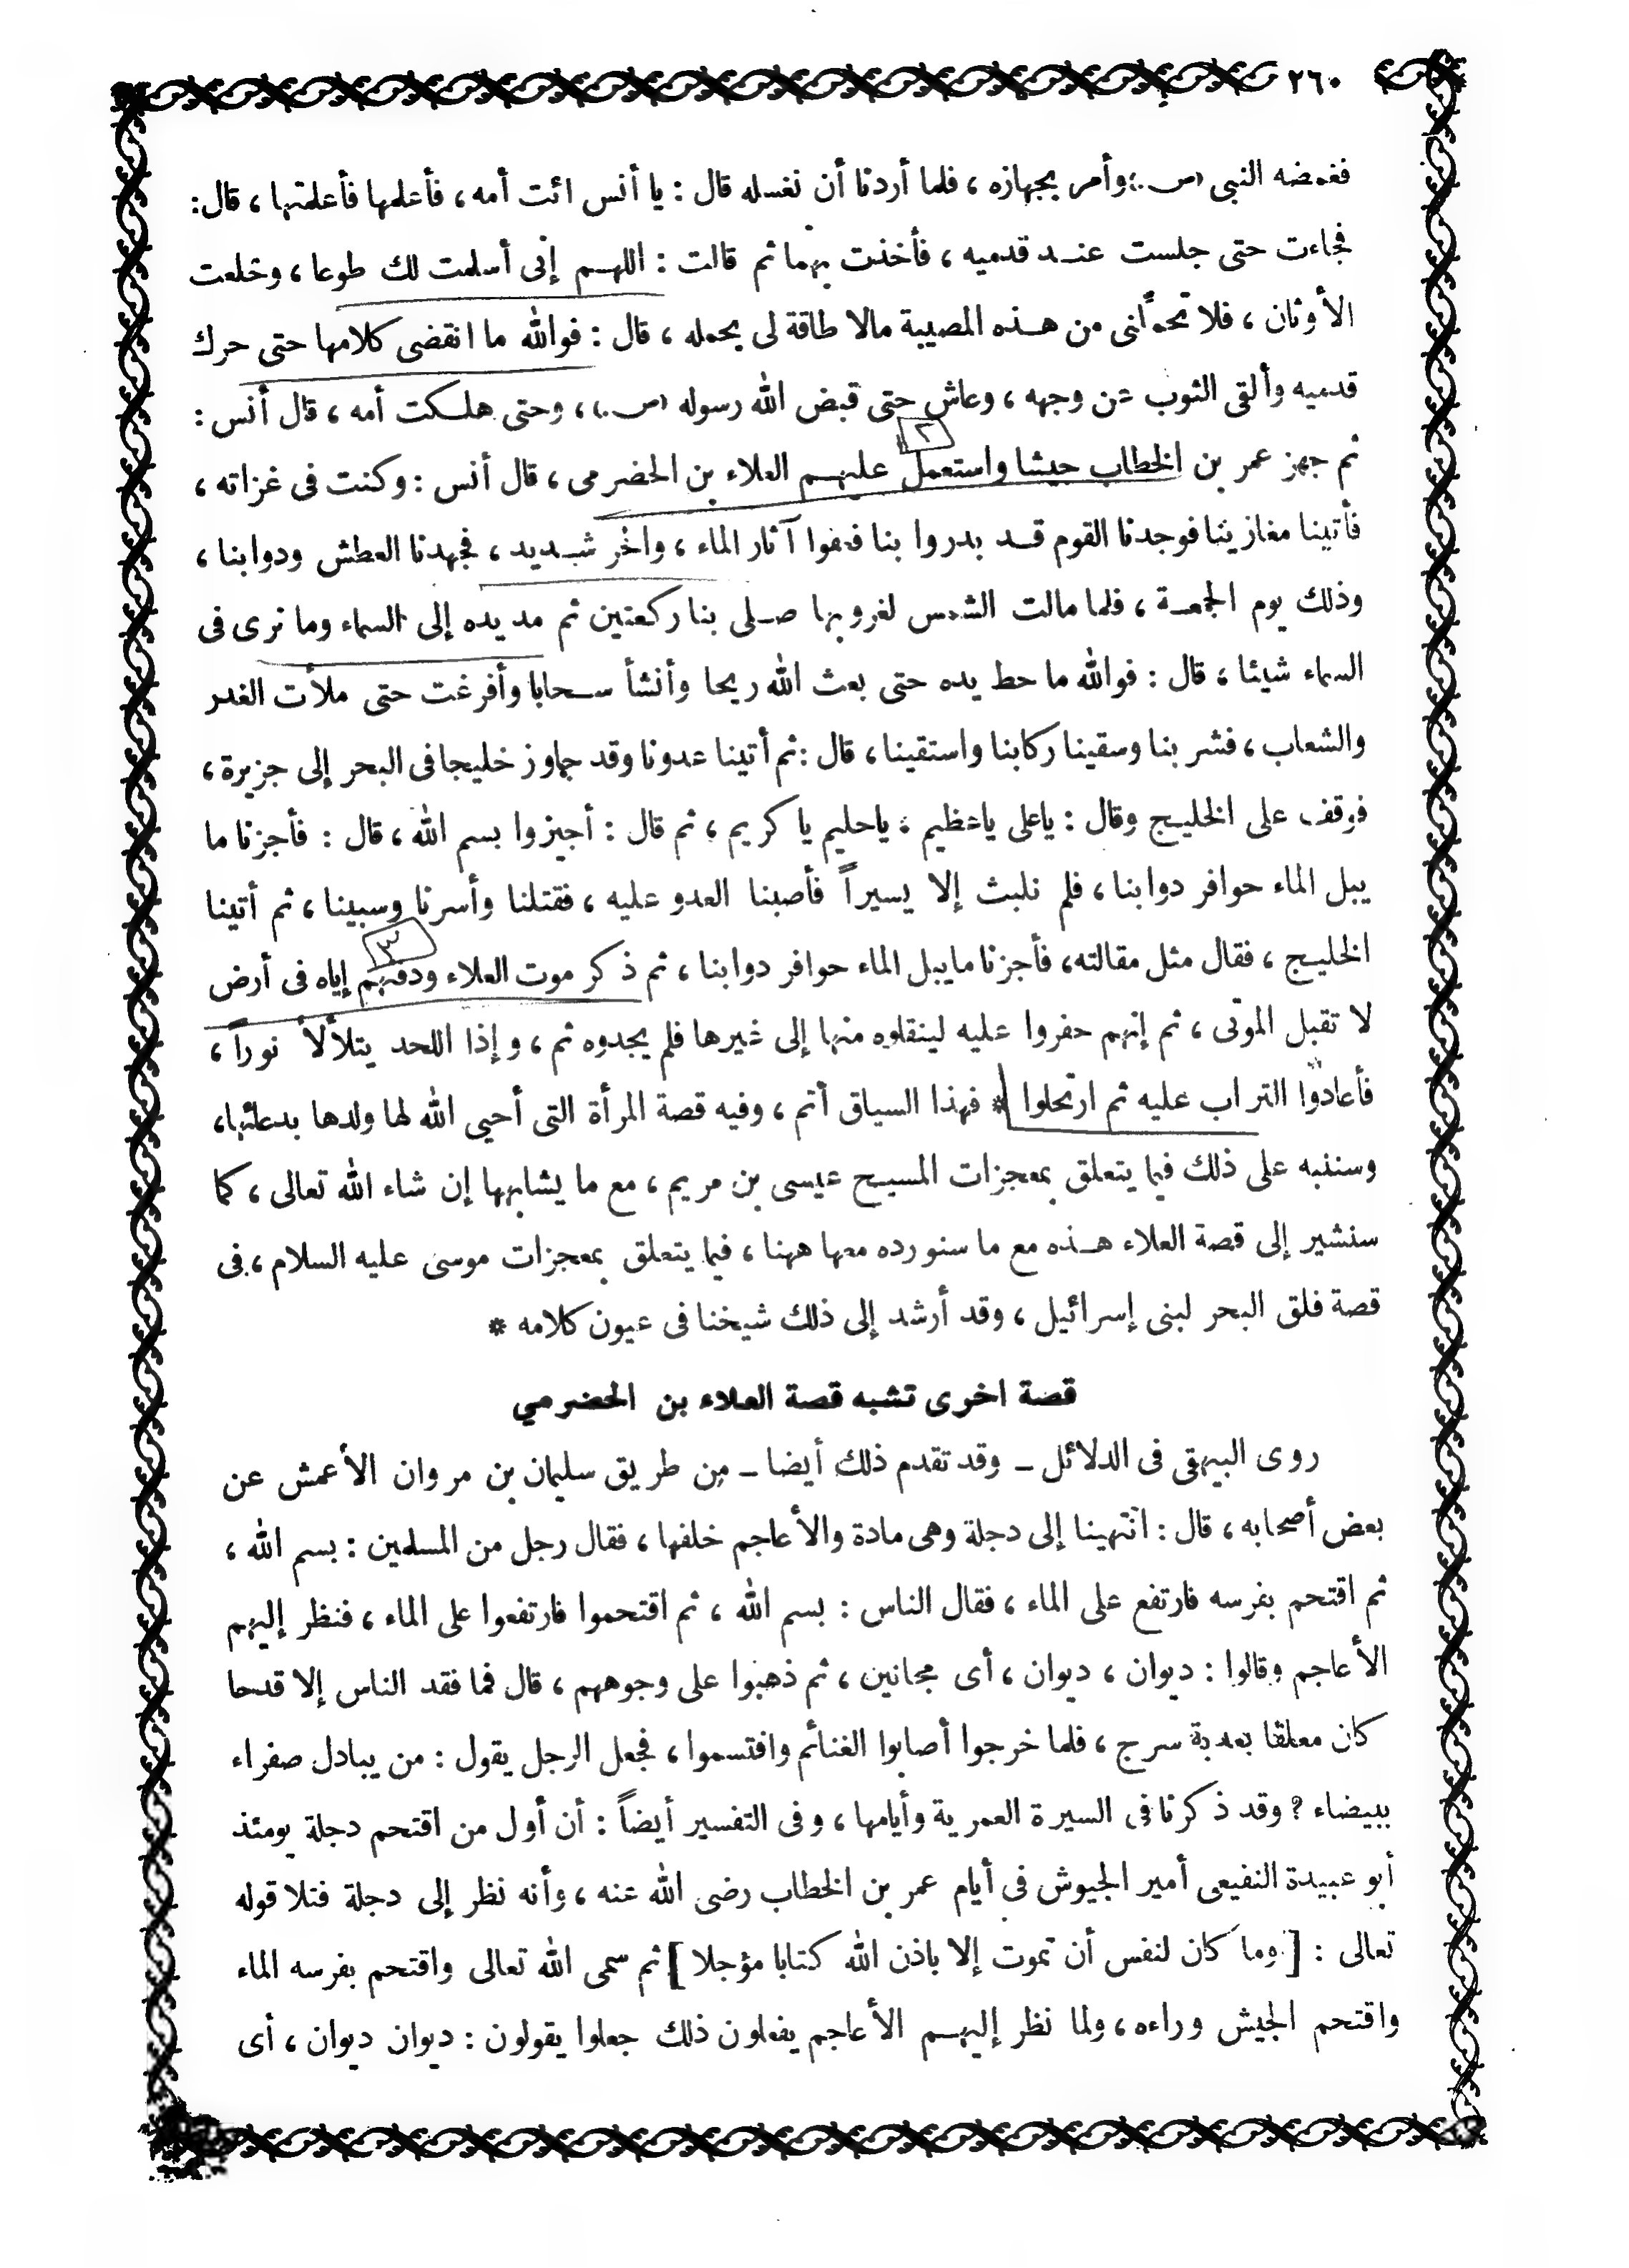 ٢٦٠
فغمضه النبى (ص.) وأمر بجهازه ، فلما أردنا أن نغسله قال : يا أنس ائت أمه ، فأعلمها فأعلمتها ، قال :
فجاءت حتى جلست عند قدميه ، فأخذت بهما ثم قالت : اللهم إنى أسلمت لك طوعا ، وخلعت
الأوثان ، فلا تحملنى من هذه المصيبة مالا طاقة لى بحمله ، قال : فوالله ما انقضى كلامها حتى حرك
قدميه وألقى الثوب عن وجهه ، وعاش حتى قبض الله رسوله (ص.) ، وحتى هلكت أمه ، قال أنس :
٢
ثم جهز عمر بن الخطاب جيشا واستعمل عليهم العلاء بن الحضرمى ، قال أنس : وكنت فى غزاته ،
فأتينا مغازينا فوجدنا القوم قد بدروا بنا فعفوا آثار الماء ، والحر شديد ، فجهدنا العطش ودوابنا ،
وذلك يوم الجمعة ، فلما مالت الشمس لغروبها صلى بنا ركعتين ثم مد يده إلى السماء وما نرى فى
السماء شيئا ، قال : فوالله ما حط يده حتى بعث الله ريحا وأنشأ سحابا وأفرغت حتى ملأت الغدر
والشعاب ، فشربنا وسقينا ركابنا واستقينا ، قال : ثم أتينا عدونا وقد جاوز خليجا فى البحر إلى جزيرة ،
فوقف على الخليج وقال : ياعلى ياعظيم ، ياحليم يا كريم ، ثم قال : أجيزوا بسم الله ، قال : فأجزنا ما
يبل الماء حوافر دوابنا ، فلم نلبث إلا يسيراً فأصبنا العدو عليه ، فقتلنا وأسرنا وسبينا ، ثم أتينا
٣
الخليج ، فقال مثل مقالته ، فأجزنا مايبل الماء حوافر دوابنا ، ثم ذكر موت العلاء ودفنهم إياه فى أرض
لا تقبل الموتى ، ثم إنهم حفروا عليه لينقلوه منها إلى غيرها فلم يجدوه ثم ، وإذا اللحد يتلألأ نوراً ،
فأعادوا التراب عليه ثم ارتحلوا * فهذا السياق أتم ، وفيه قصة المرأة التى أحيى الله لها ولدها بدعائها ،
وسننبه على ذلك فيما يتعلق بمعجزات المسيح عيسى بن مريم ، مع ما يشابهها إن شاء الله تعالى ، كما
سنشير إلى قصة العلاء هذه مع ما سنورده معها ههنا ، فيما يتعلق بمعجزات موسى عليه السلام ، فى
قصة فلق البحر لبنى إسرائيل ، وقد أرشد إلى ذلك شيخنا فى عيون كلامه *
قصة اخرى تشبه قصة العلاء بن الحضرمي
روى البيهقى فى الدلائل ــ وقد تقدم ذلك أيضا ــ من طريق سليمان بن مروان الأعمش عن
بعض أصحابه ، قال : انتهينا إلى دجلة وهى مادة والأعاجم خلفها ، فقال رجل من المسلمين : بسم الله ،
ثم اقتحم بفرسه فارتفع على الماء ، فقال الناس : بسم الله ، ثم اقتحموا فارتفعوا على الماء ، فنظر إليهم
الأعاجم وقالوا : ديوان ، ديوان ، أى مجانين ، ثم ذهبوا على وجوههم ، قال فما فقد الناس إلا قدحا
كان معلقا بعذبة سرج ، فلما خرجوا أصابوا الغنائم واقتسموا ، فجعل الرجل يقول : من يبادل صفراء
ببيضاء ؟ وقد ذكرنا فى السيرة العمرية وأيامها ، وفى التفسير أيضاً : أن أول من اقتحم دجلة يومئذ
أبو عبيدة النفيعى أمير الجيوش فى أيام عمر بن الخطاب رضى الله عنه ، وأنه نظر إلى دجلة فتلا قوله
تعالى : [ وما كان لنفس أن تموت إلا باذن الله كتابا مؤجلا ] ثم سمى الله تعالى واقتحم بفرسه الماء
واقتحم الجيش وراءه ، ولما نظر إليهم الأعاجم يفعلون ذلك جعلوا يقولون : ديوان ديوان ، أى